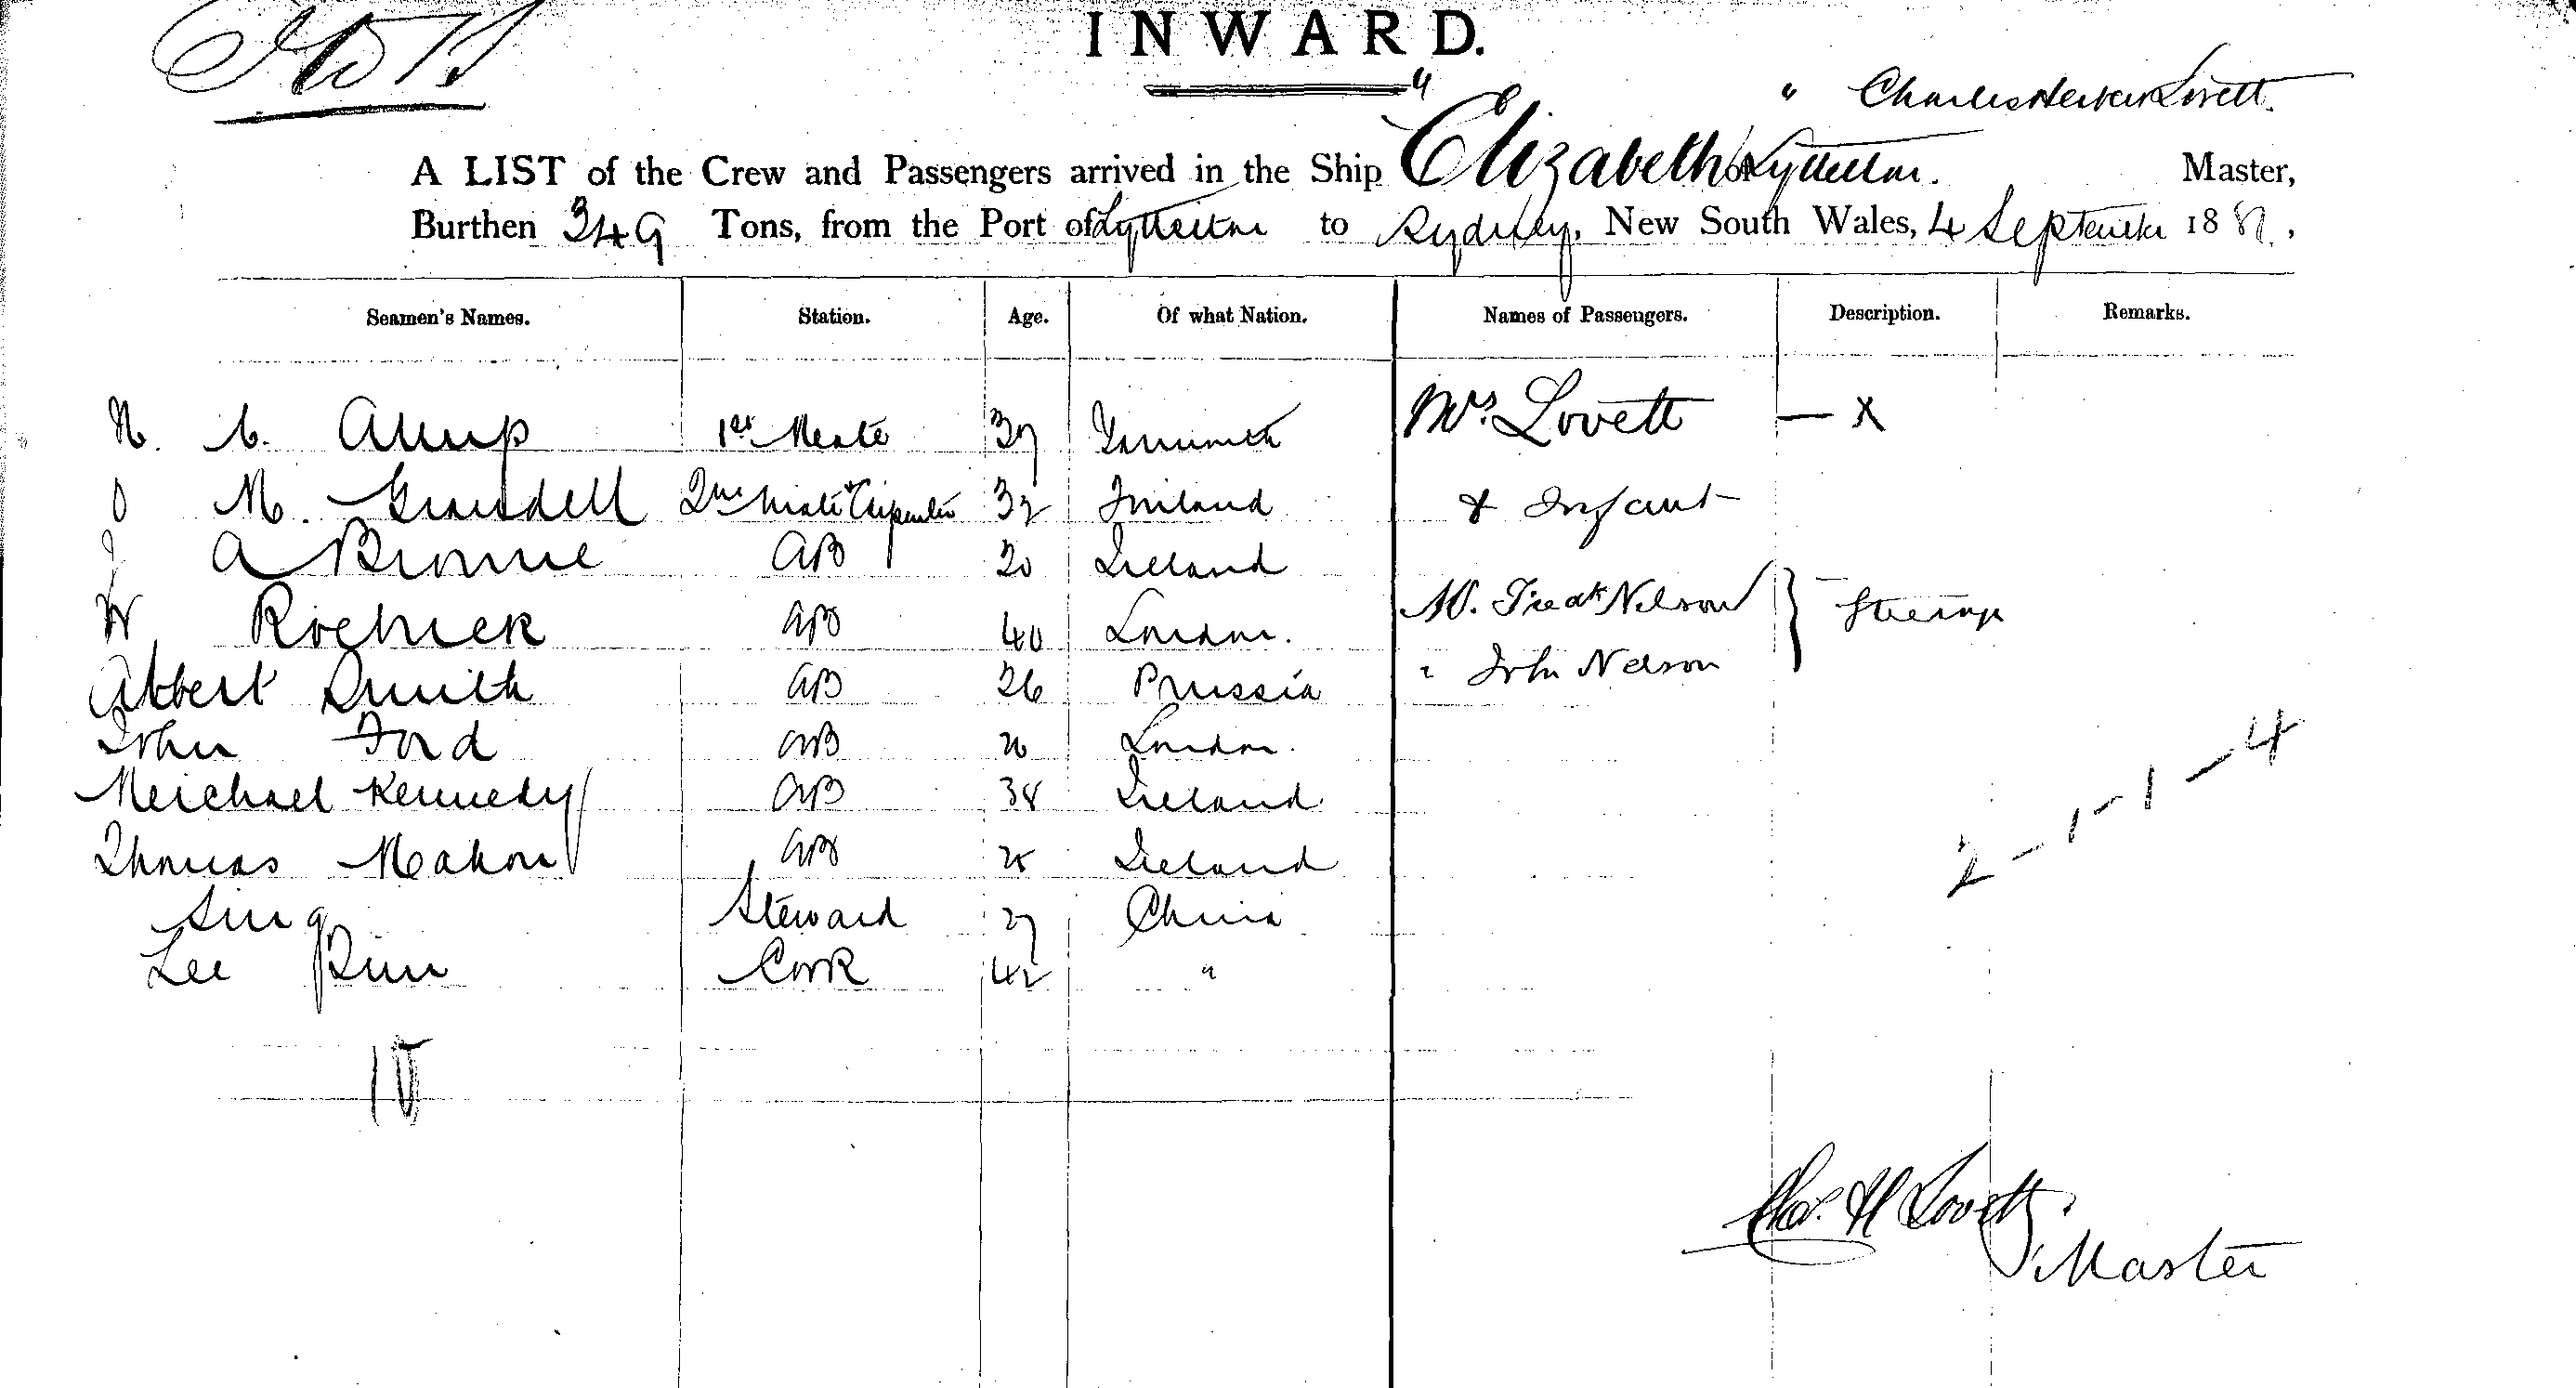 INWARD.
" " Charles Lovett.
A LIST of the Crew and Passengers arrived in the Ship Elizabeth of Lyttelton. Master,
Burthen 349 Tons, from the Port of Lyttelton to Sydney, New South Wales, 4 September 188
Seamen's Names. Station. Age. Of what Nation. Names of Passengers. Description. Remarks.
N. C. 1st Mate 37 Mrs. Lovett — X
O M. 2nd Mate & Carpenter 32 Finland & Infant
J A Browne AB 20 Ireland
W AB 40 London. Nelson } Steerage
Albert Smith AB 26 Prussia " John Nelson
John Ford AB London.
Meichael Kennedy AB 38 Ireland
Thomas Mahon AB Ireland
Sing Steward 27 China
Lee Cook 42 "
2 – 1 – 1 – 4
10
Chas. H Lovett
Master